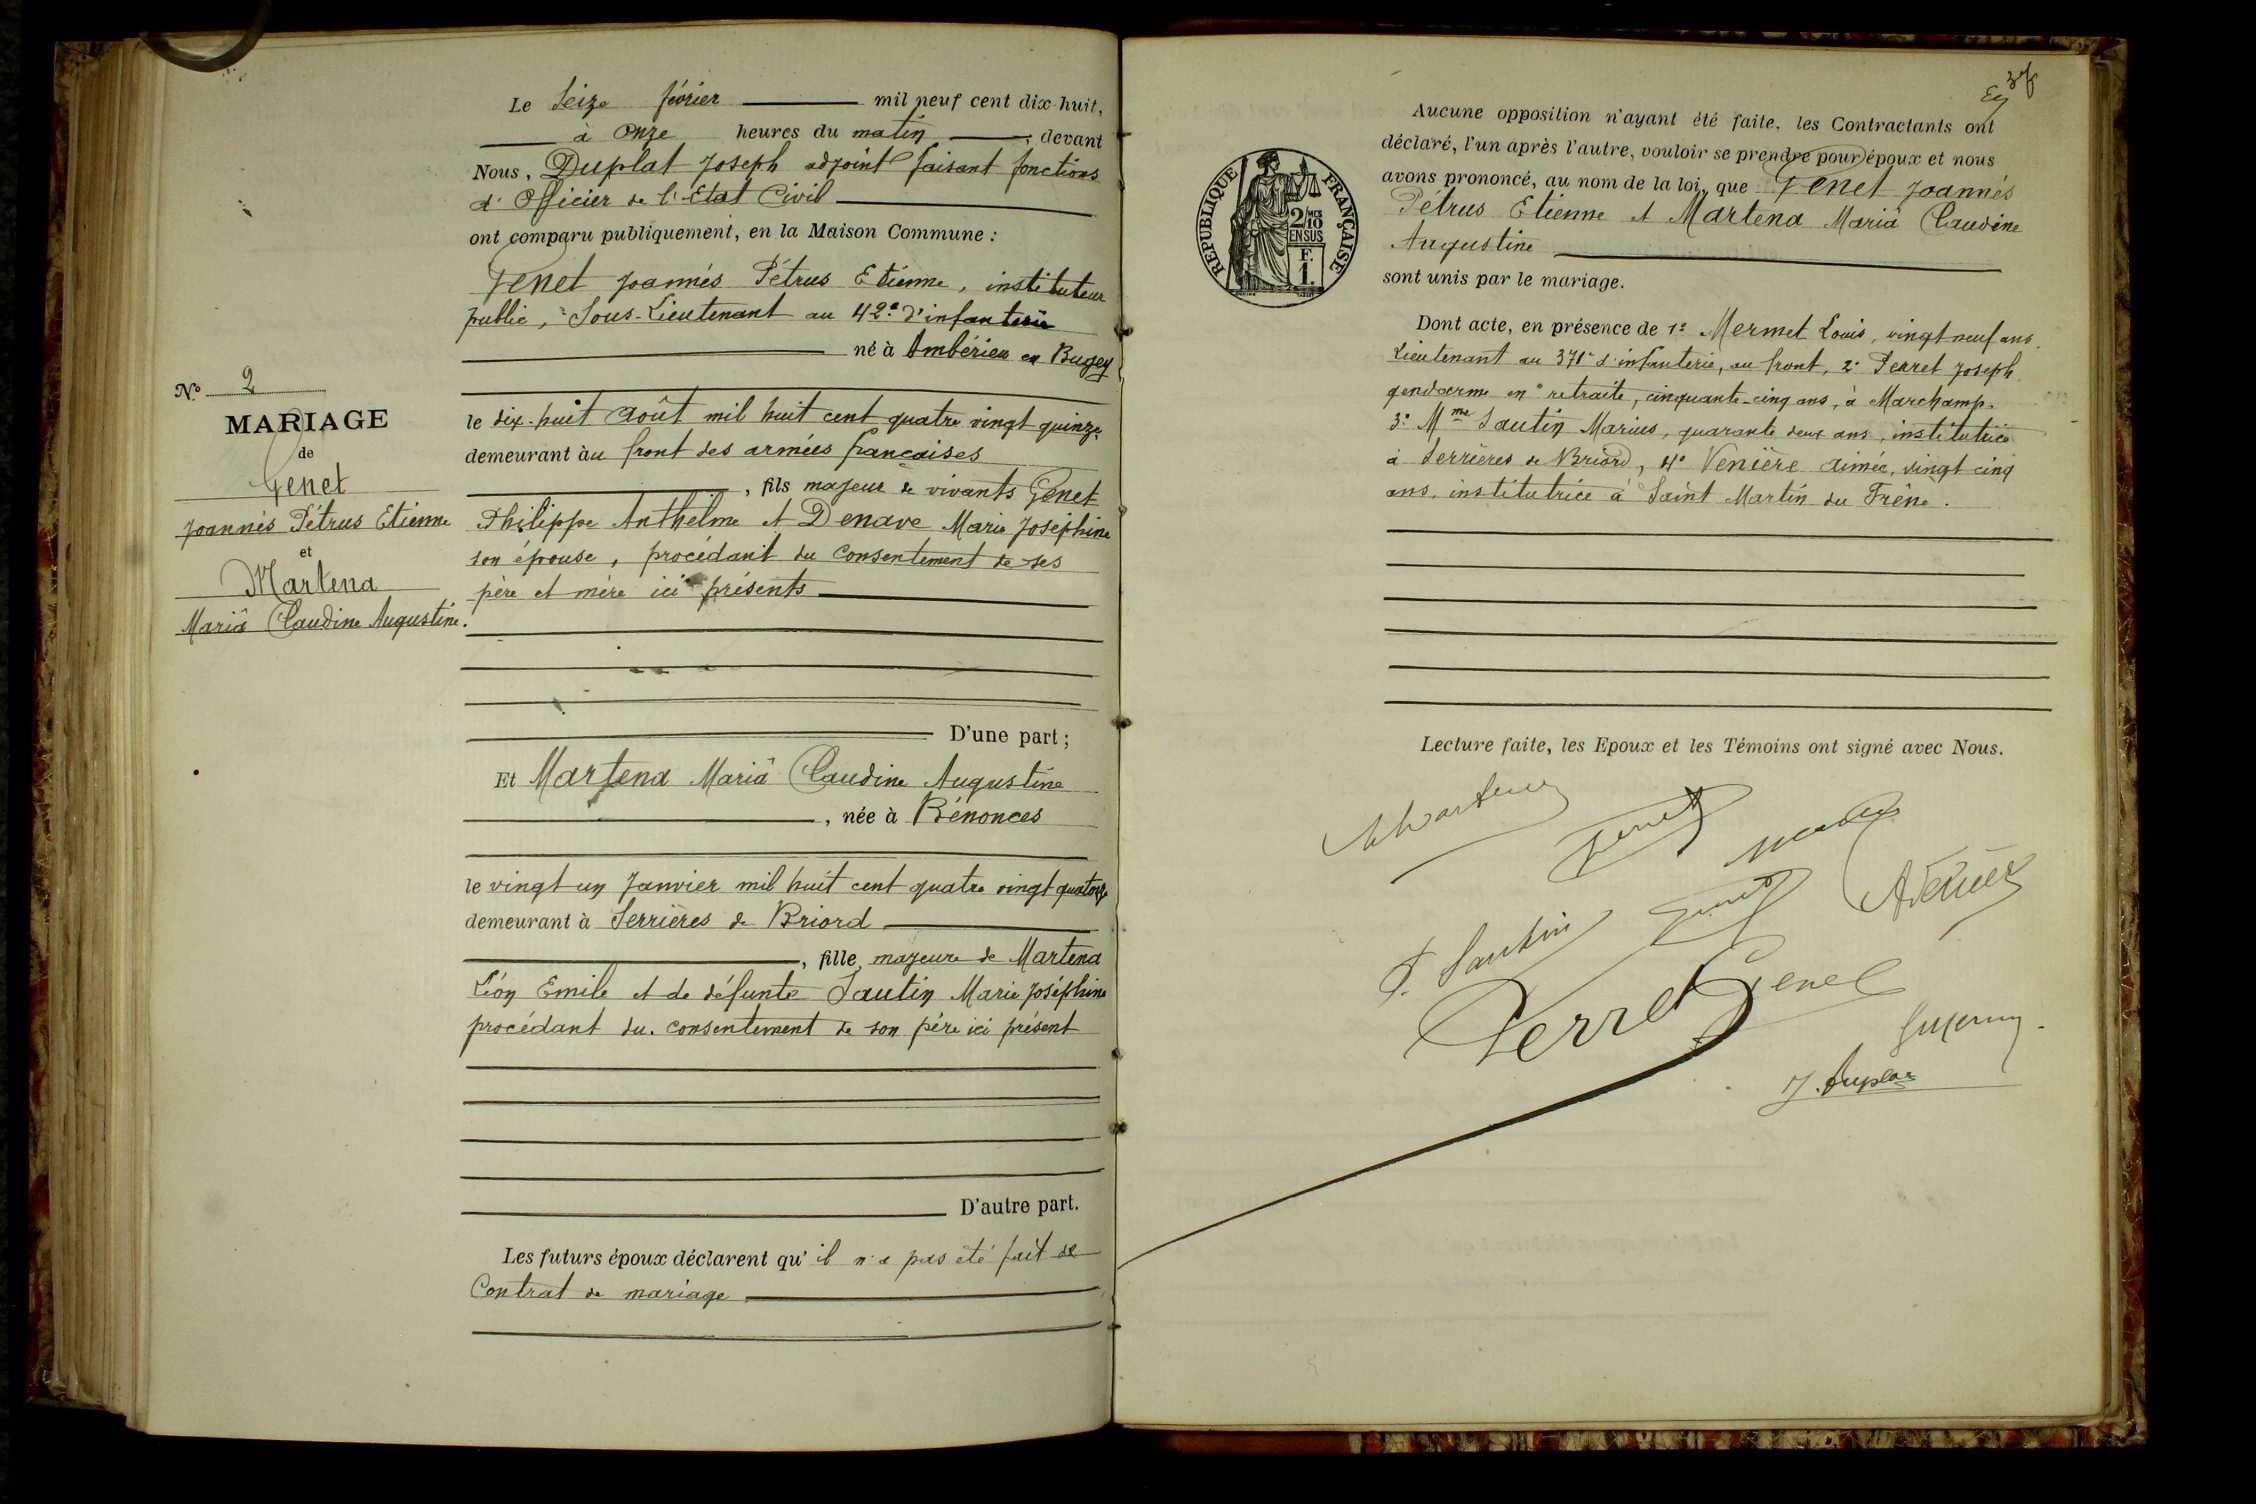 Le Seize février mil neuf cent dix-huit,
à Onze heures du matin, devant
Nous, Duplat Joseph adjoint faisant fonctions
d'Officier de l'Etat Civil
ont comparu publiquement, en la Maison Commune :
Genet Joannès Pétrus Etienne, instituteur
public, Sous-Lieutenant au 42e d'infanterie
né à Ambérieu en Bugey
No 2
MARIAGE
de
Genet
Joannès Pétrus Etienne
et
Martena
Mariâ Claudine Augustine.
le dix-huit Août mil huit cent quatre vingt quinze
demeurant àu front des armées françaises
, fils majeur de vivants Genet
Philippe Anthelme et Denave Marie Joséphine
son épouse, procédant du consentement de ses
père et mère ici présents
D'une part ;
Et Martena Mariâ Claudine Augustine
, née à Bénonces
le vingt un Janvier mil huit cent quatre vingt quatorze
demeurant à Serrières de Briord
, fille majeure de Martena
Léon Emile et de défunte Sautin Marie Joséphine
procédant du consentement de son père ici présent
D'autre part.
Les futurs époux déclarent qu'il n'a pas été fait de
Contrat de mariage
37
Aucune opposition n'ayant été faite, les Contractants ont
déclaré, l'un après l'autre, vouloir se prendre pour époux et nous
avons prononcé, au nom de la loi, que Genet Joannès
Pétrus Etienne et Martena Mariâ Claudine
Augustine
sont unis par le mariage.
RÉPUBLIQUE FRANÇAISE
2/10 MES
EN SUS
F.
1.
Dont acte, en présence de 1° Mermet Louis, vingt neuf ans,
Lieutenant au 371e d'infanterie, au front, 2° Perret Joseph
gendarme en retraite, cinquante-cinq ans, à Marchamp.
3° Mme Sautin Marius, quarante deux ans, institutrice
à Serrières de Briord, 4° Venière Aimée, vingt cinq
ans, institutrice à Saint Martin du Frêne.
Lecture faite, les Epoux et les Témoins ont signé avec Nous.
Martena
Genet
Sautin
Genet
Perret
Genet
J. Duplat